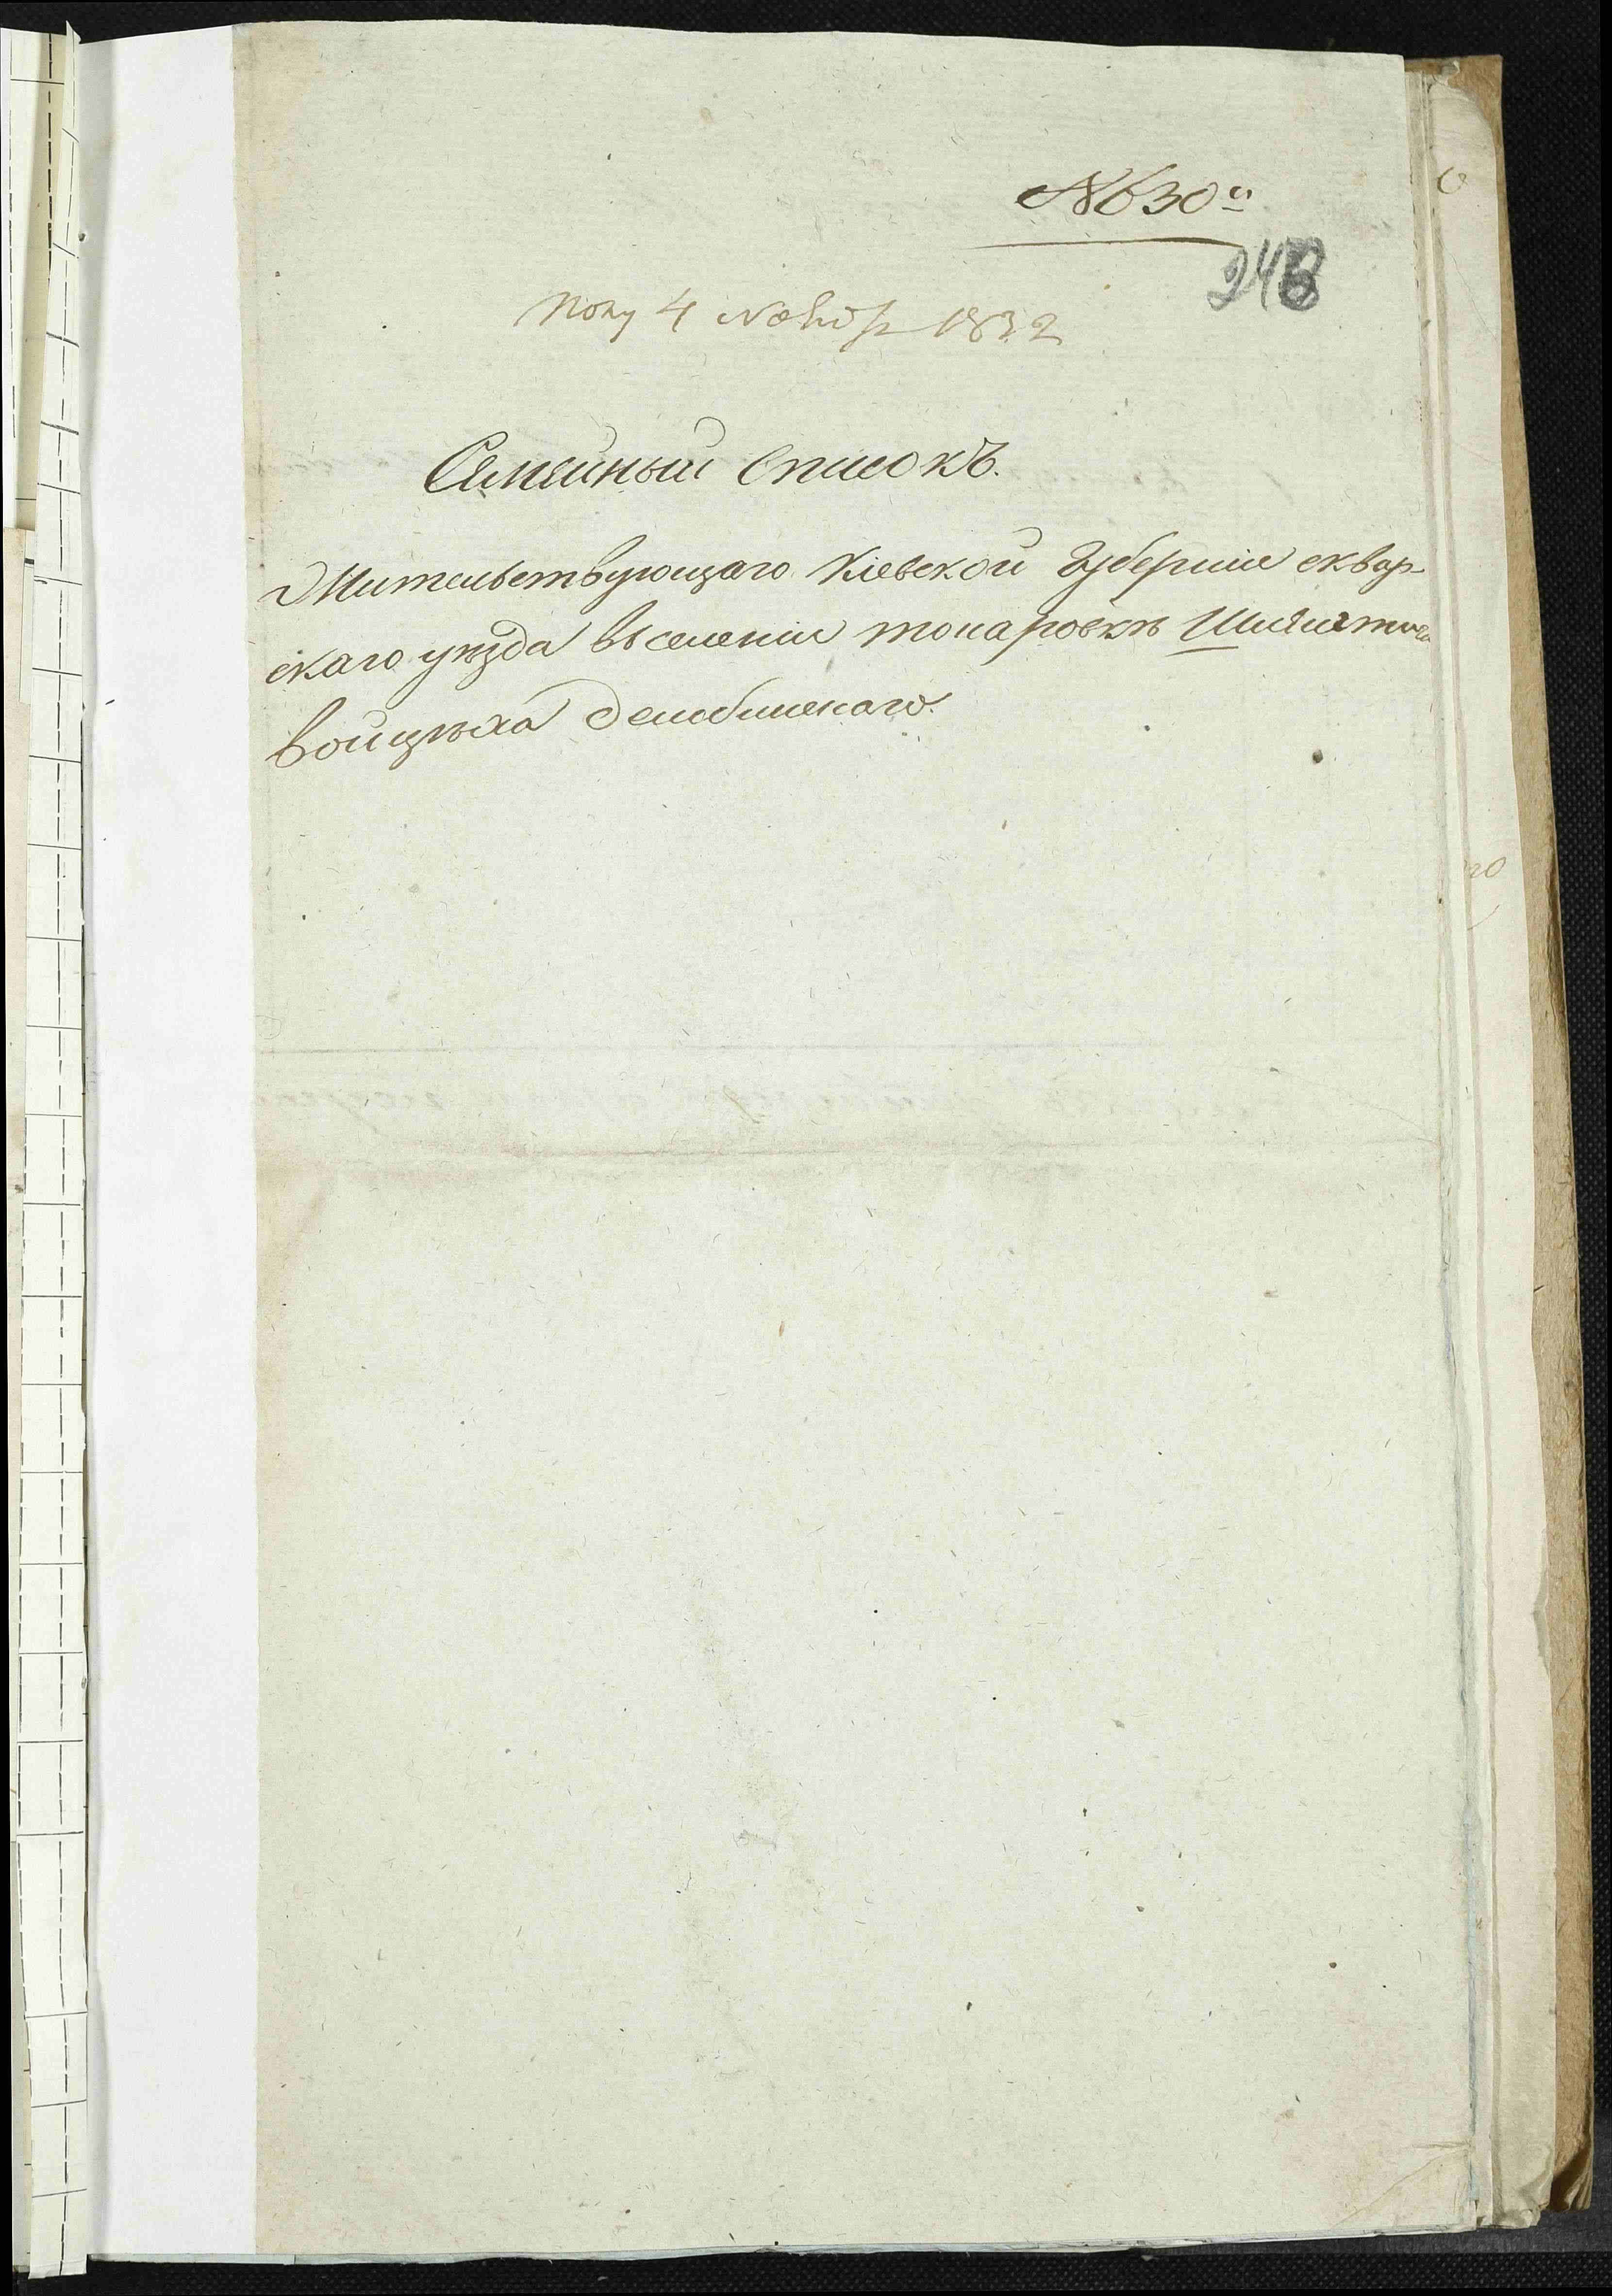 №630й
248
Полу 4 Ноября 1832
Семейный списокъ.
Жительствующаго Кіевской Губерніи сквир-
скаго уезда вселеніи токаровкѣ Шляхтича
войцѣха Дембицкаго.